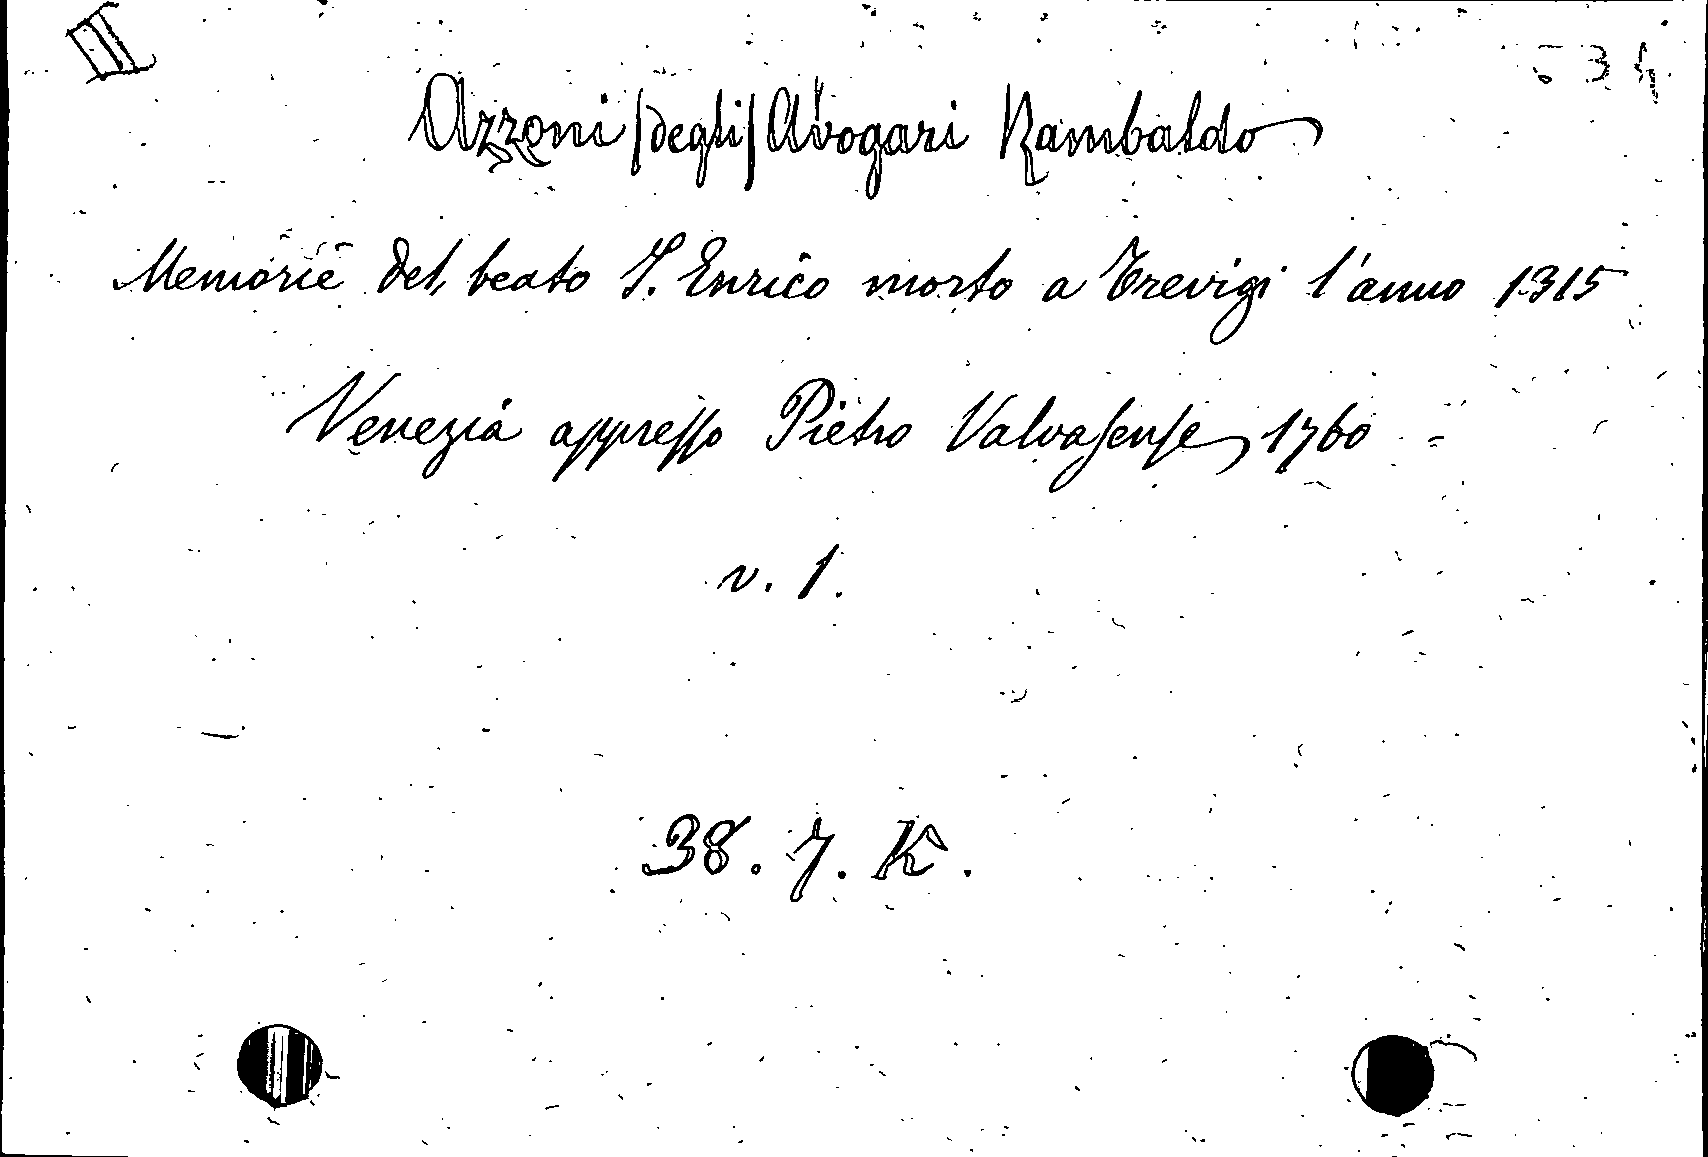 III
534
Azzoni /degli/ Avogari Rambaldo
Memorie del beato S. Enrico morto a Trevigi l'anno 1315
Venezia appresso Pietro Valvasense, 1760
v. 1.
38. 7. K.